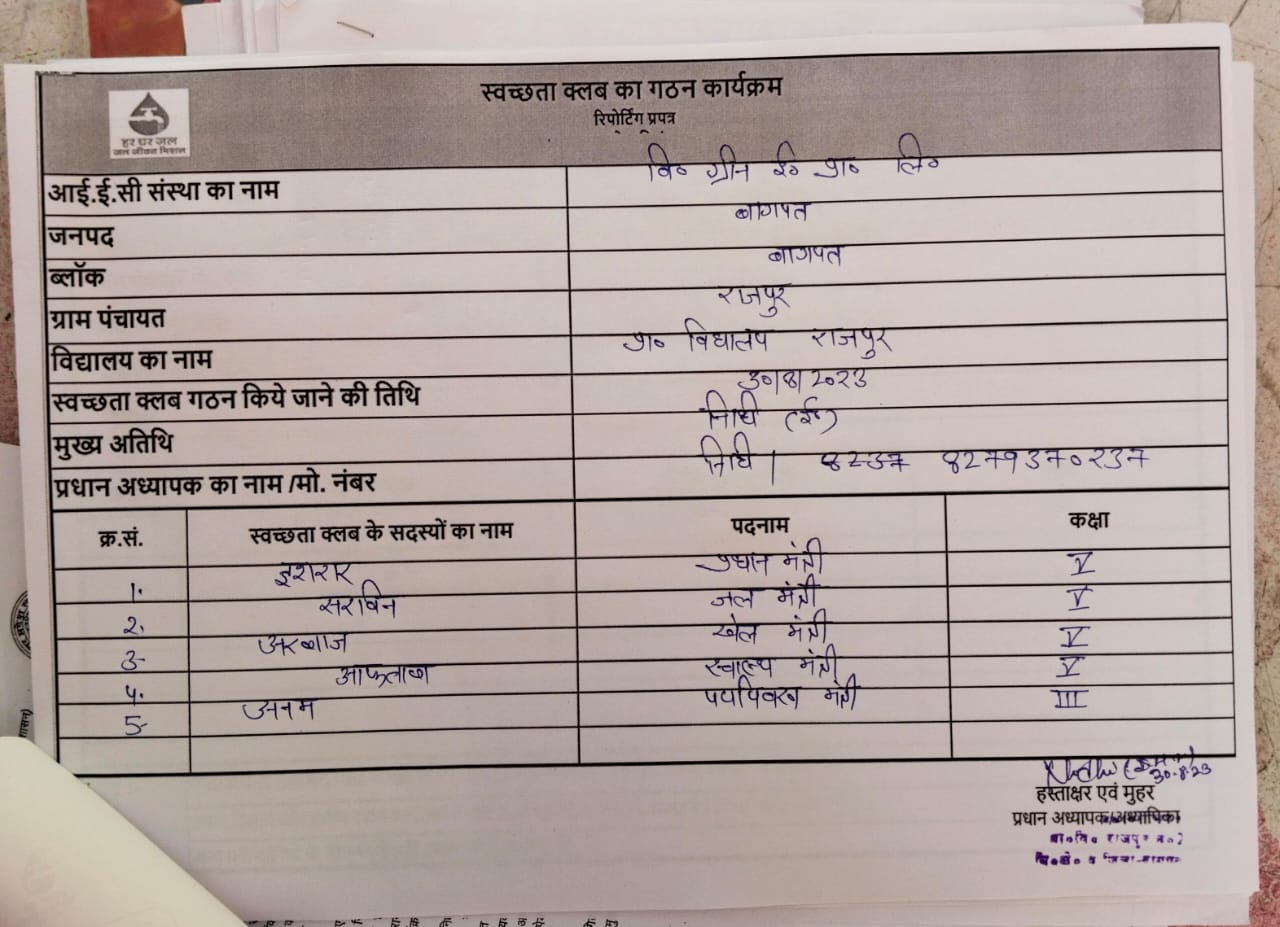 हर घर जल
जल जीवन मिशन
स्वच्छता क्लब का गठन कार्यक्रम
रिपोर्टिंग प्रपत्र
आई.ई.सी संस्था का नाम वि० ग्रीन ई० प्रा० लि०
जनपद बागपत
ब्लॉक बागपत
ग्राम पंचायत राजपुर
विद्यालय का नाम प्रा० विद्यालय राजपुर
स्वच्छता क्लब गठन किये जाने की तिथि 30/8/2023
मुख्य अतिथि निधि (ई०)
प्रधान अध्यापक का नाम /मो. नंबर निधि / 8237 8279370237
क्र.सं. स्वच्छता क्लब के सदस्यों का नाम पदनाम कक्षा
1. इशरार प्रधान मंत्री V
2. सरविन जल मंत्री V
3- अरबाज खेल मंत्री V
4. आफताब स्वास्थ्य मंत्री V
5- अनम पर्यावरण मंत्री III
30.8.23
हस्ताक्षर एवं मुहर
प्रधान अध्यापक/अध्यापिका
प्रा०वि० राजपुर न०2